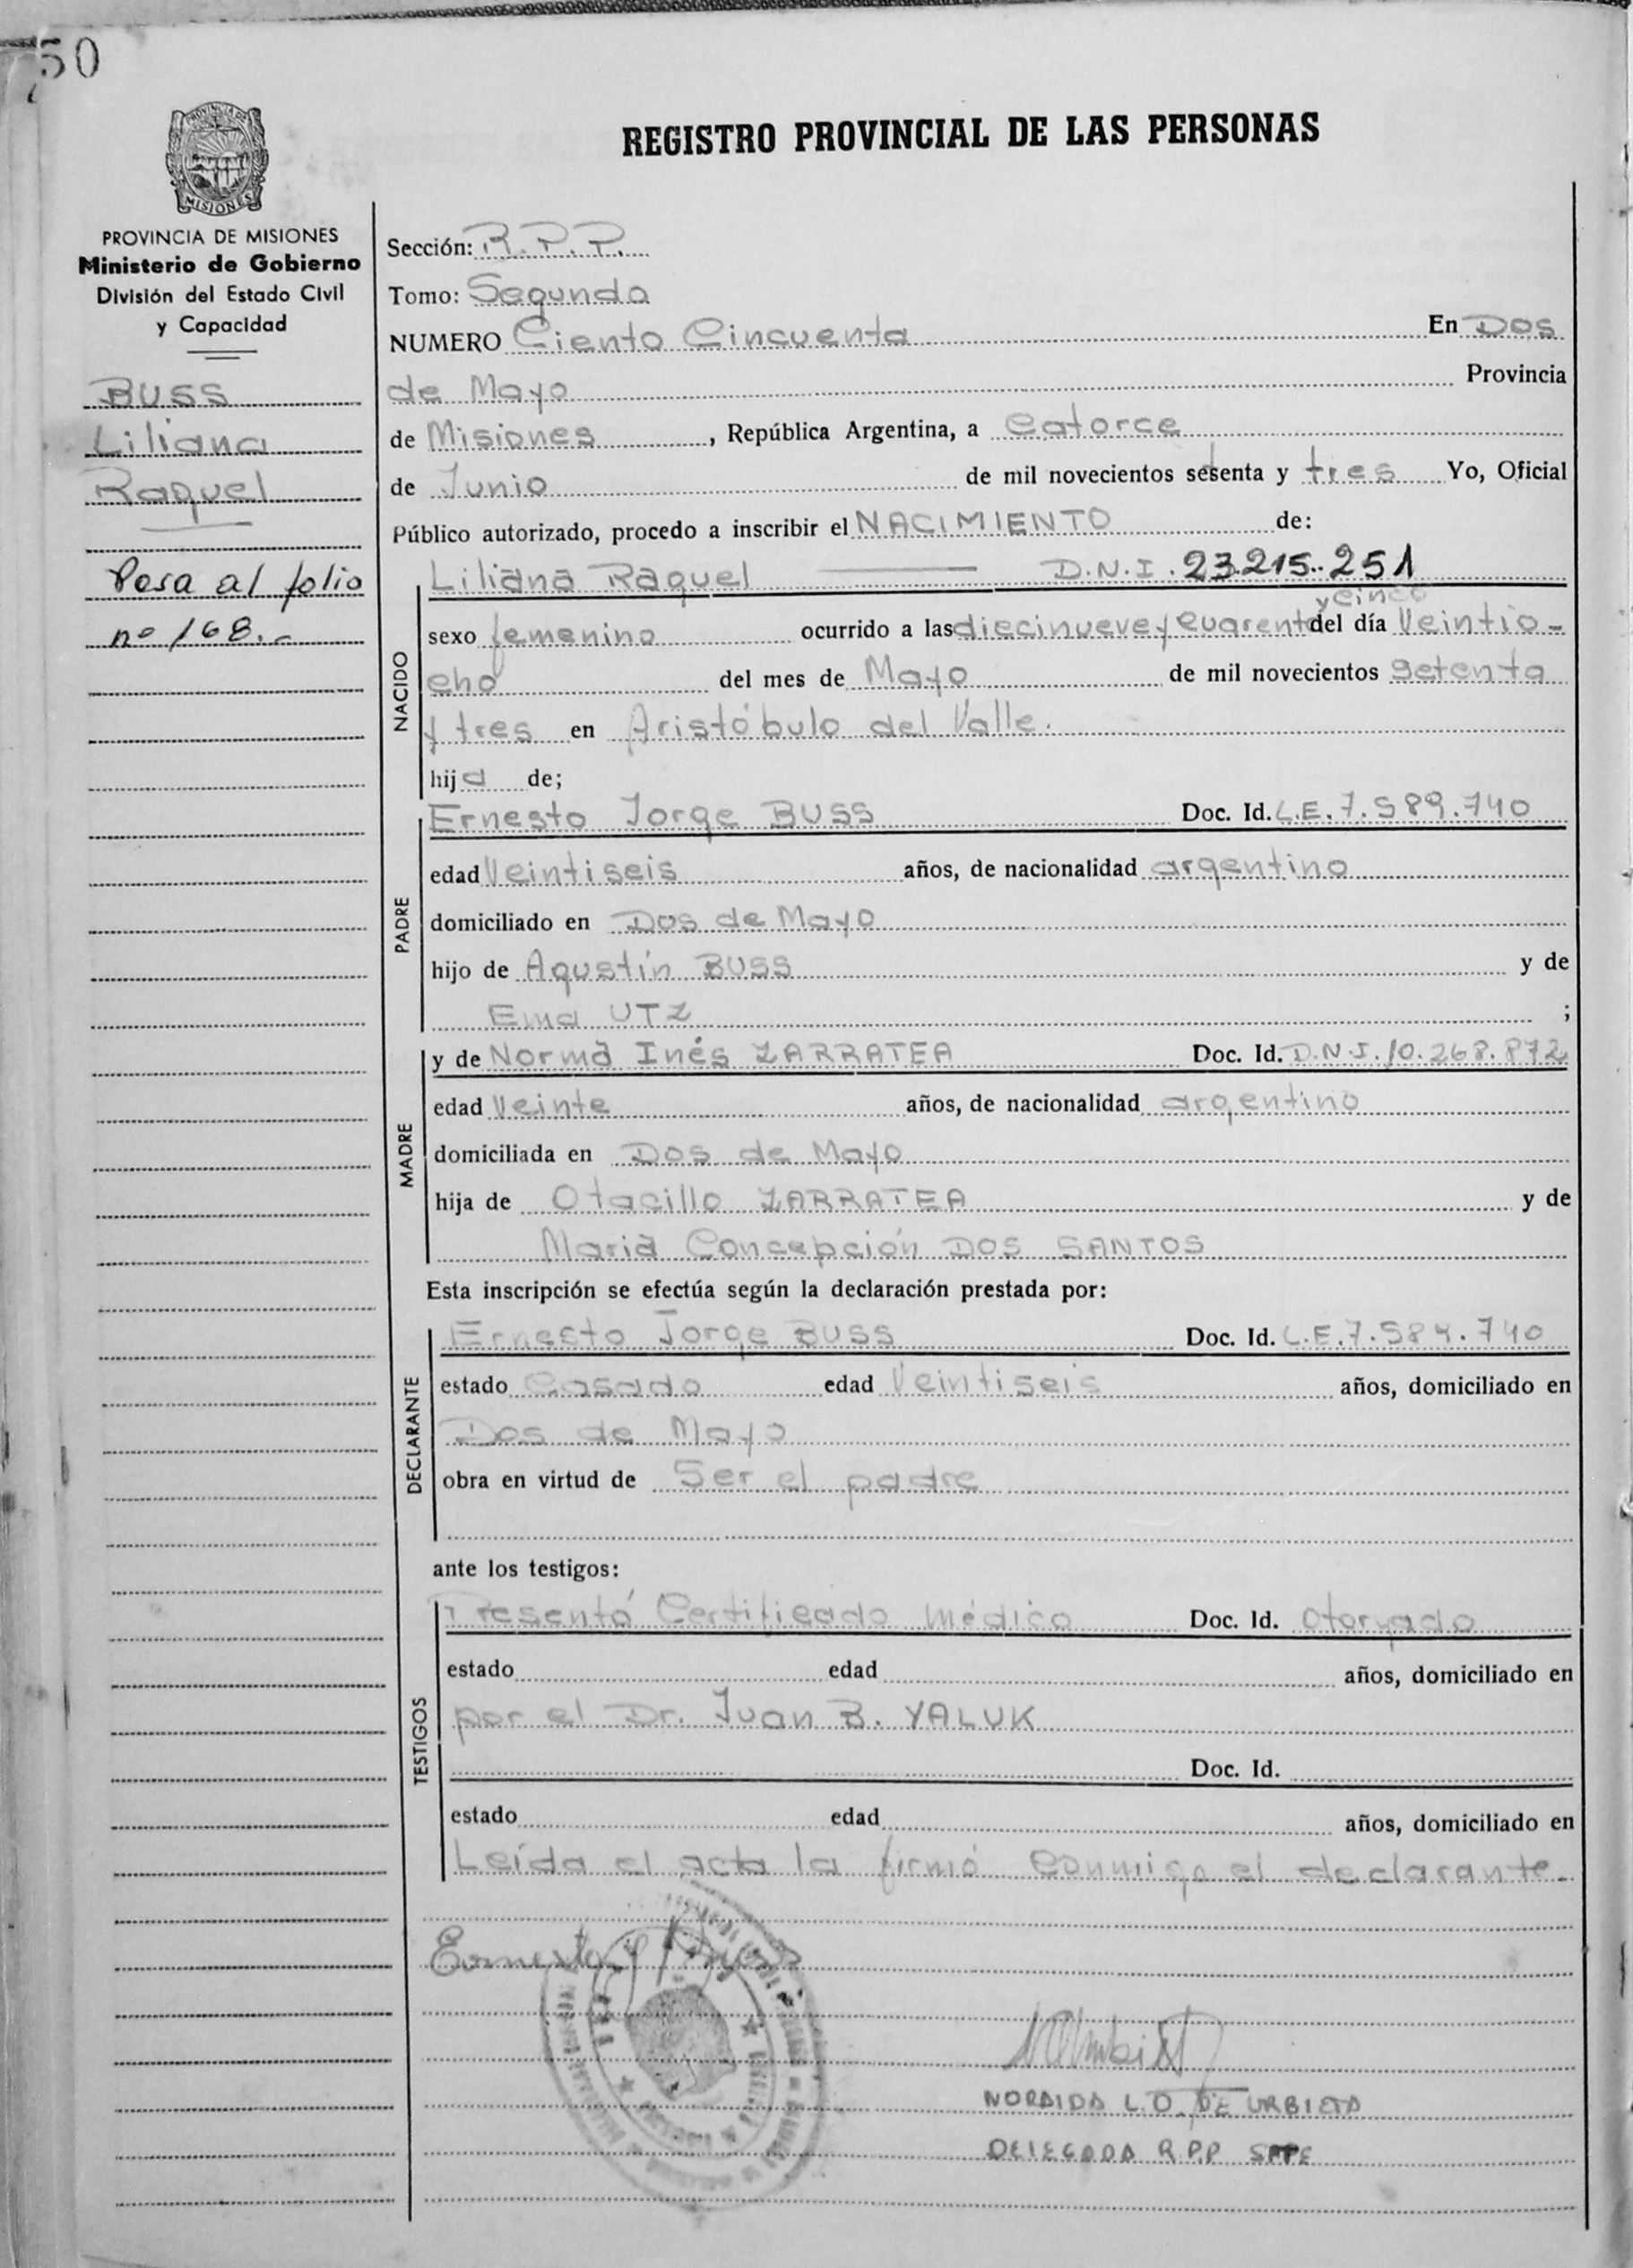 50
REGISTRO PROVINCIAL DE LAS PERSONAS
MISIONES
PROVINCIA DE MISIONES
Ministerio de Gobierno
División del Estado Civil
y Capacidad
BUSS
Liliana
Raquel
Pasa al folio
nº 168.-
Sección: R.P.P.
Tomo: Segundo
NUMERO Ciento Cincuenta En Dos
de Mayo Provincia
de Misiones, República Argentina, a Catorce
de Junio de mil novecientos setenta y tres Yo, Oficial
Público autorizado, procedo a inscribir el NACIMIENTO de:
NACIDO
Liliana Raquel D.N.I. 23.215.251
y cinco
sexo femenino ocurrido a las diecinueve y cuarenta del día Veintio-
cho del mes de Mayo de mil novecientos setenta
y tres en Aristóbulo del Valle.
hija de;
PADRE
Ernesto Jorge BUSS Doc. Id. L.E. 7.589.740
edad Veintiseis años, de nacionalidad argentino
domiciliado en Dos de Mayo
hijo de Agustín BUSS y de
Ema UTZ ;
MADRE
y de Norma Inés ZARRATEA Doc. Id. D.N.I. 10.268.872
edad Veinte años, de nacionalidad argentino
domiciliada en Dos de Mayo
hija de Otacillo ZARRATEA y de
Maria Concepción DOS SANTOS
Esta inscripción se efectúa según la declaración prestada por:
DECLARANTE
Ernesto Jorge BUSS Doc. Id. L.E. 7.589.740
estado Casado edad Veintiseis años, domiciliado en
Dos de Mayo
obra en virtud de Ser el padre
ante los testigos:
TESTIGOS
Presentó Certificado médico Doc. Id. otorgado
estado edad años, domiciliado en
por el Dr. Juan B. YALUK
Doc. Id.
estado edad años, domiciliado en
Leída el acta la firmó conmigo el declarante.
Ernesto J Buss
NORAIDA L.O. DE URBIETA
DELEGADA R.P.P